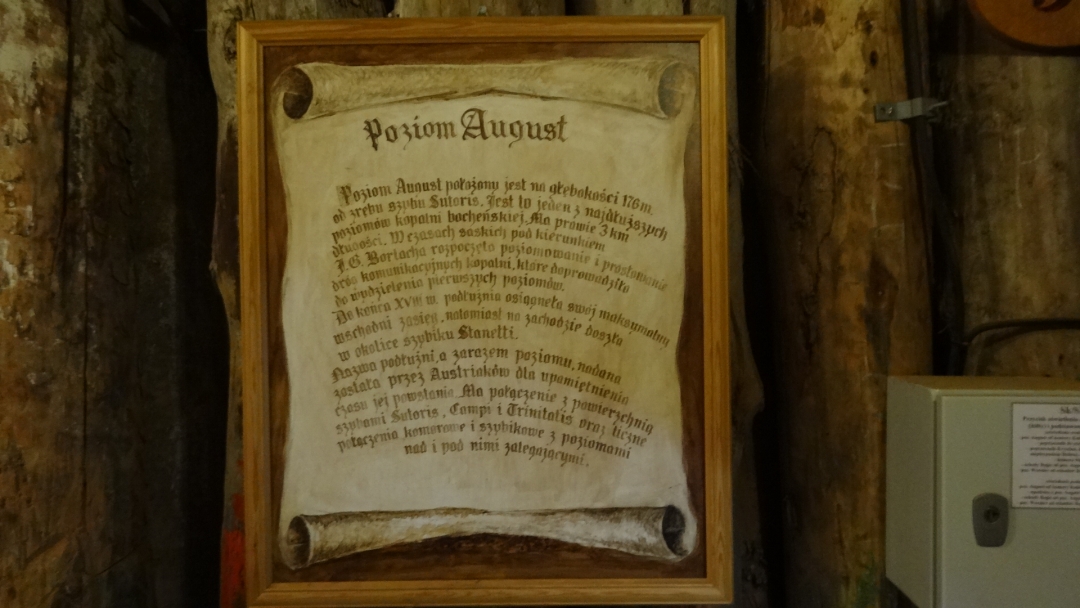 Poziom August
Poziom August położony jest na głębokości 176 m.
od zrębu szybu Sutoris. Jest to jeden z najdłuższych
poziomów kopalni bocheńskiej. Ma prawie 3 km
długości. W czasach saskich pod kierunkiem
J.G. Borlacha rozpoczęto poziomowanie i prostowanie
dróg komunikacyjnych kopalni, które doprowadziło
do wydzielenia pierwszych poziomów.
Do końca XVIII w. podłużnia osiągnęła swój maksymalny
wschodni zasięg, natomiast na zachodzie doszła
w okolice szybiku Stanetti.
Nazwa podłużni, a zarazem poziomu, nadana
została przez Austriaków dla upamiętnienia
czasu jej powstania. Ma połączenie z powierzchnią
szybami Sutoris, Campi i Trinitatis oraz liczne
połączenia komorowe i szybikowe z poziomami
nad i pod nimi zalegającymi.